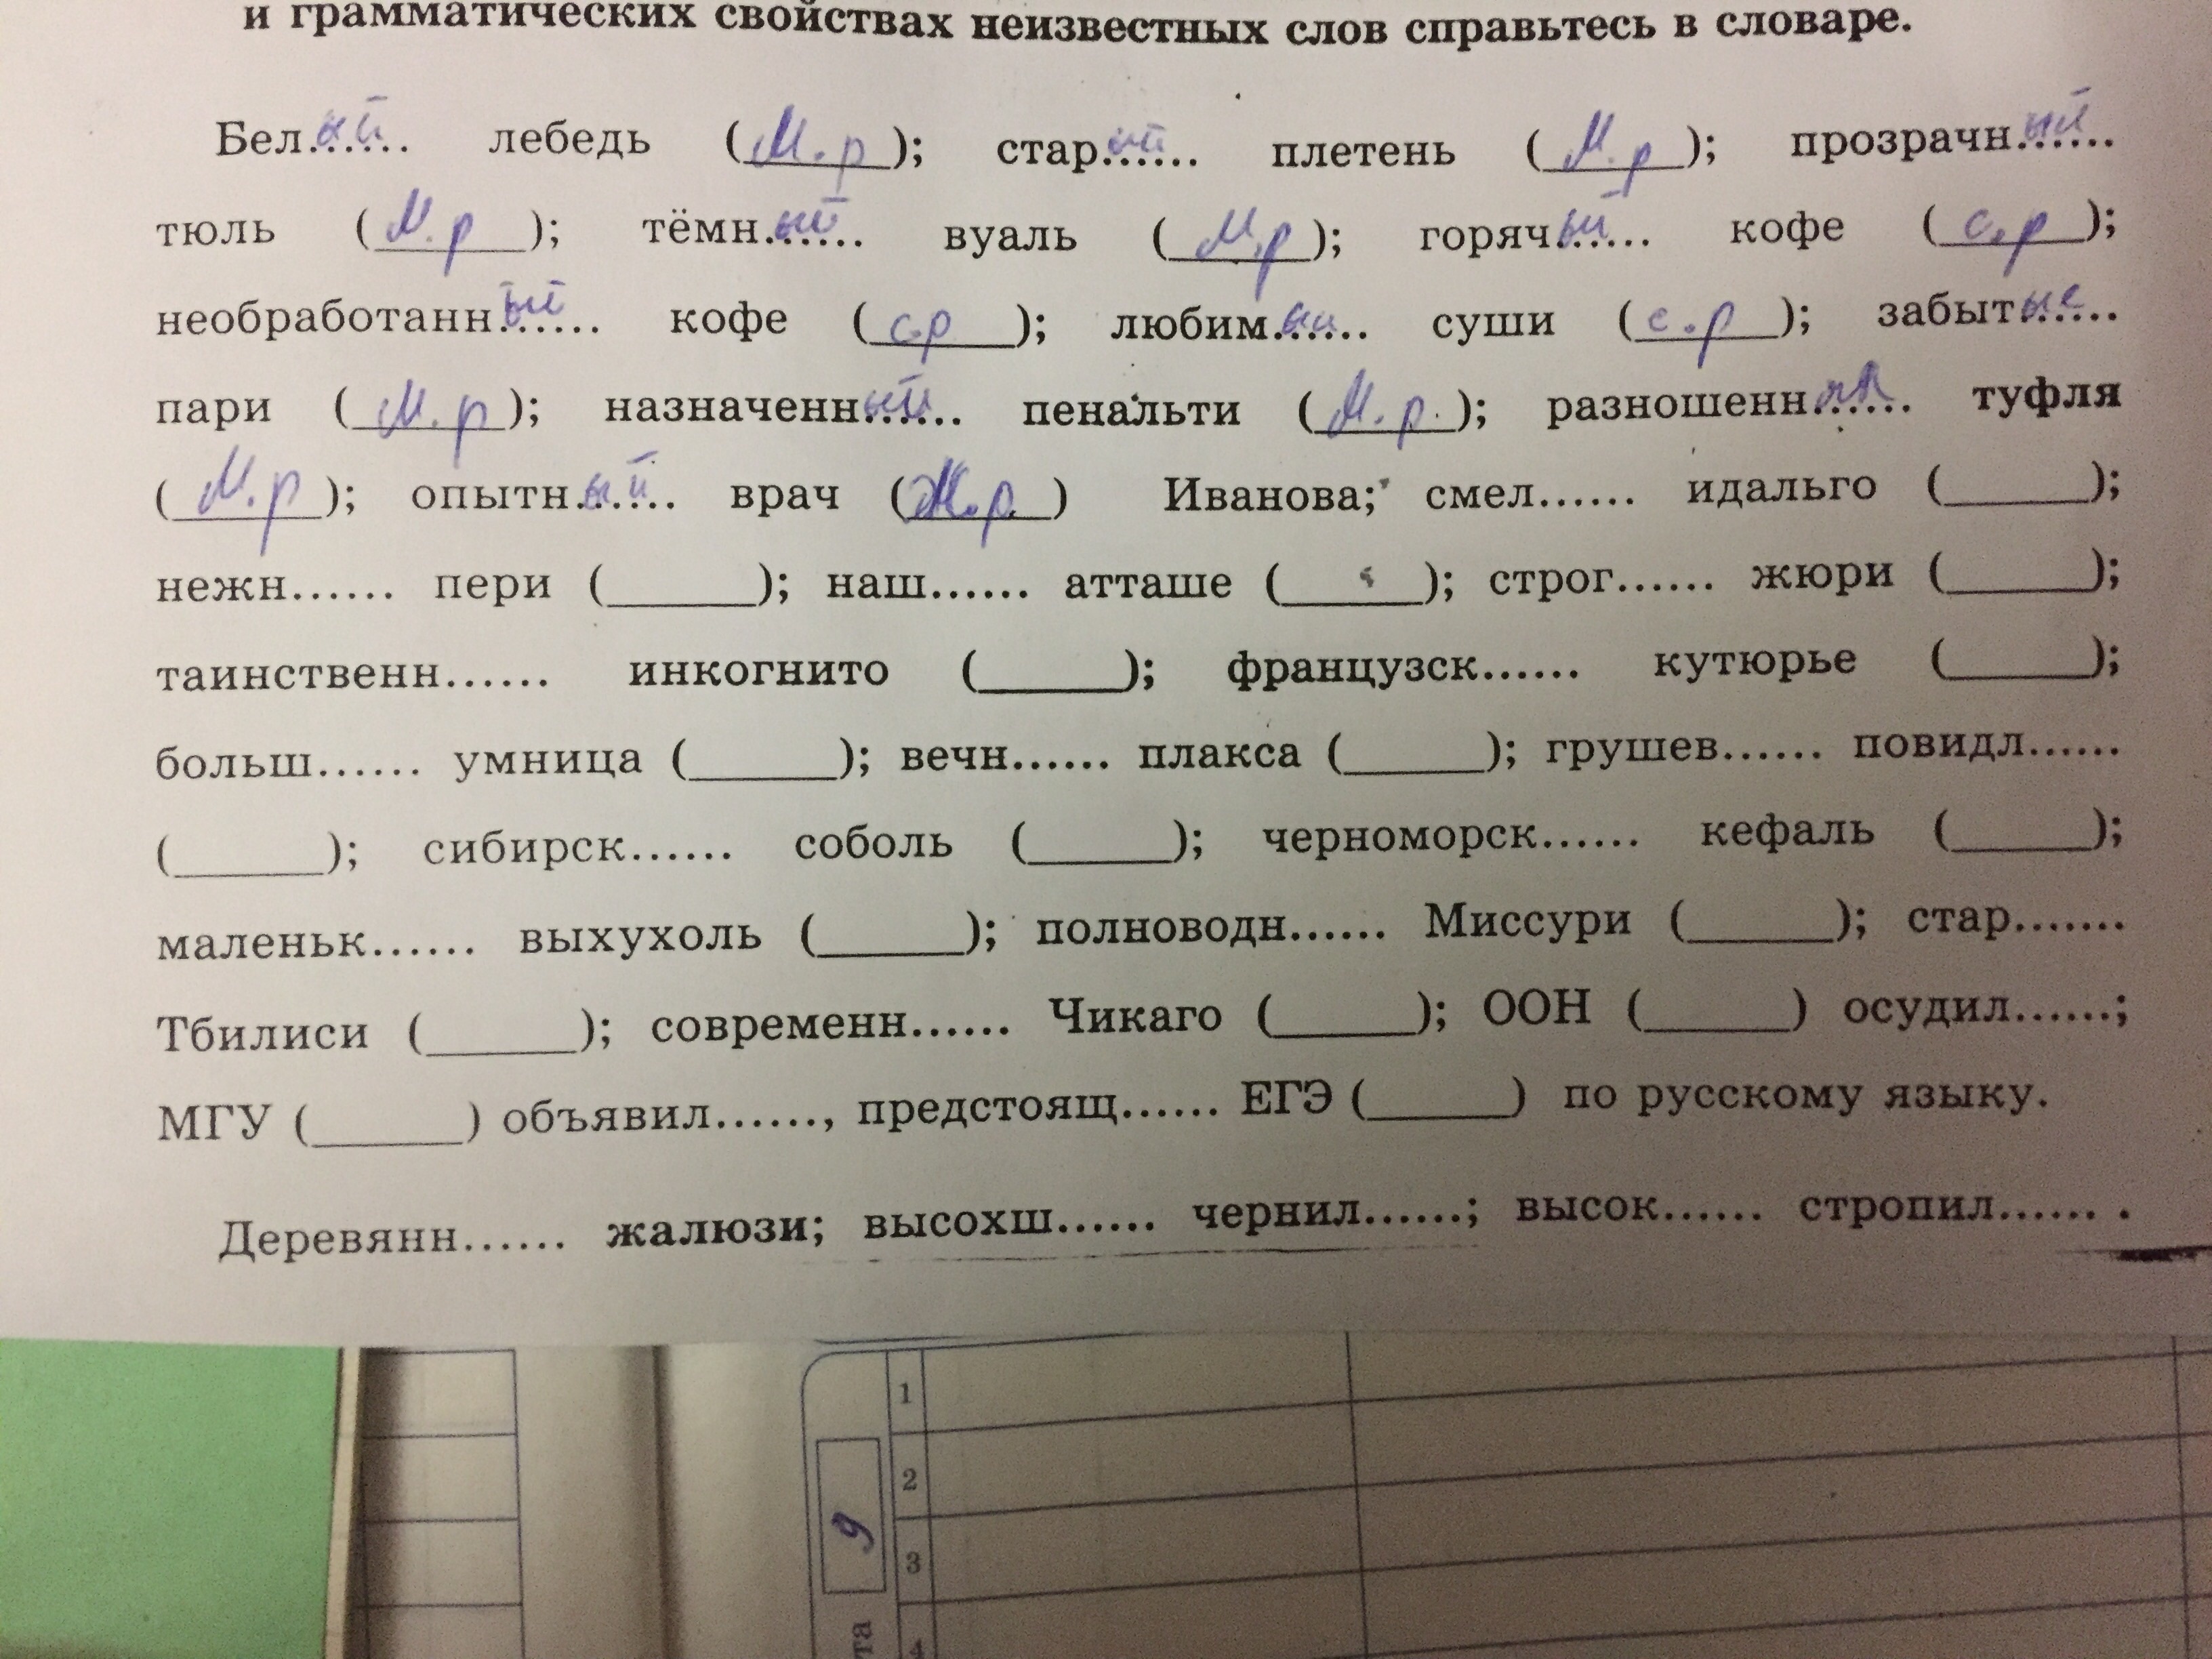 и грамматических свойствах неизвестных слов справьтесь в словаре.
Бел...ый... лебедь (М.р); стар...ый... плетень (М.р); прозрачн...ый...
тюль (М.р); тёмн...ый... вуаль (М.р); горяч...ый... кофе (с.р);
необработанн...ый... кофе (ср); любим...ый... суши (с.р); забыт...ые...
пари (М.р); назначенн...ый... пенальти (М.р.); разношенн...ая... туфля
(М.р); опытн...ый... врач (Ж.р.) Иванова; смел...... идальго (______);
нежн...... пери (______); наш...... атташе (______); строг...... жюри (______);
таинственн...... инкогнито (______); французск...... кутюрье (______);
больш...... умница (______); вечн...... плакса (______); грушев...... повидл......
(______); сибирск...... соболь (______); черноморск...... кефаль (______);
маленьк...... выхухоль (______); полноводн...... Миссури (______); стар.......
Тбилиси (______); современн...... Чикаго (______); ООН (______) осудил......;
МГУ (______) объявил......, предстоящ...... ЕГЭ (______) по русскому языку.
Деревянн...... жалюзи; высохш...... чернил......; высок...... стропил...... .
1
2
9
3
та
4